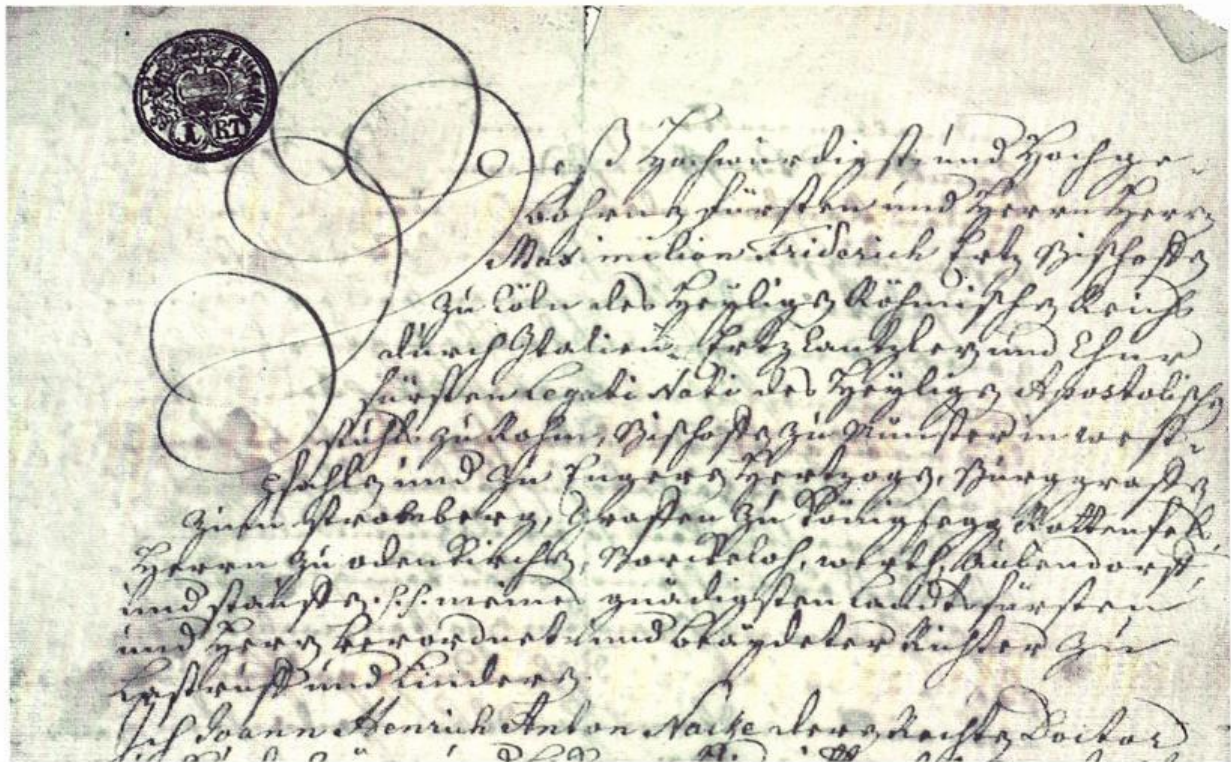 1 RT
Deß Hochwürdigst und Hochge-
bohrnen Fürsten und Herrn Herrn
Maximilian Friderich Ertz Bischoffen
zu Cöln des Heyligen Röhmischen Reichs
durch Italien Ertz Cantzleren und Chur
fürsten Legati Nati des Heyligen Apostolischen
Stuhls zu Rohm, Bischoffen zu Münster in west-
phahlen und zu Engeren Hertzogen, Burggraffen
zum Stromberg, Graffen zu Königsegg Rottenfels,
Herrn zu odenkirchen, Borckeloh, werth, Aulendorff,
und stauffen. p.p. meines gnädigsten Landtsfürsten
und Herrn verordnet und beaydeter Richter zu
Lastrup und Lindern
Ich Joann Henrich Anton Nacke deren Rechten Doctor